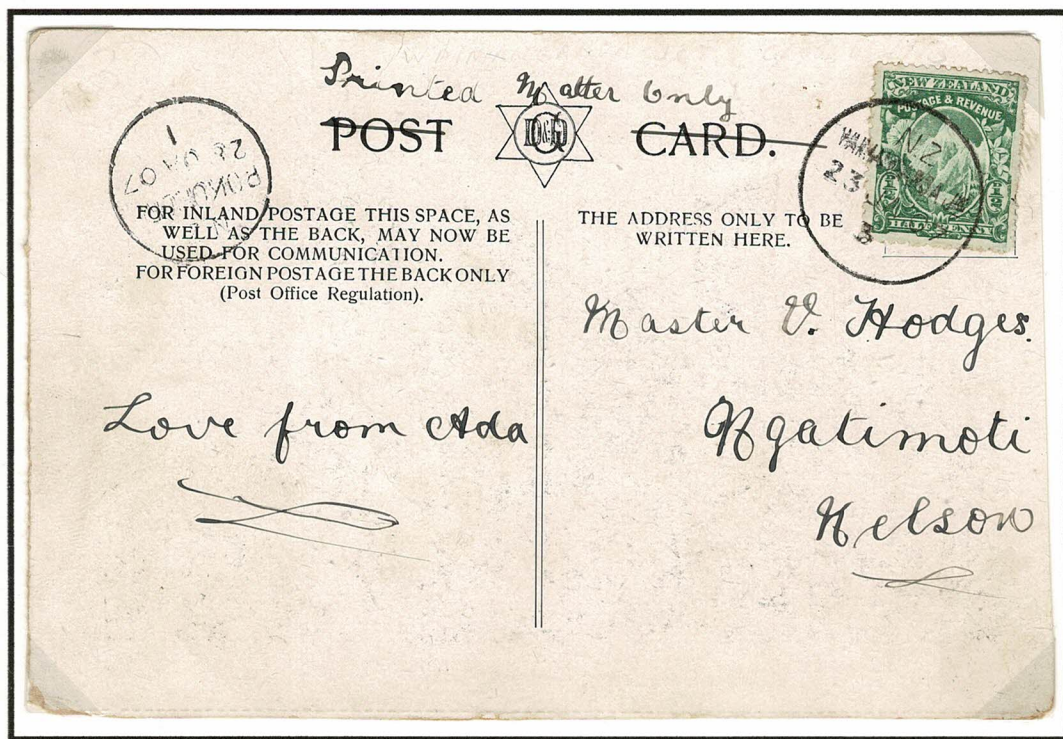 Printed Matter Only
POST CARD.
NEW ZEALAND
POSTAGE & REVENUE
HALF PENNY
NZ
23
28 JA 07
1
FOR INLAND POSTAGE THIS SPACE, AS
WELL AS THE BACK, MAY NOW BE
USED FOR COMMUNICATION.
FOR FOREIGN POSTAGE THE BACK ONLY
(Post Office Regulation).
THE ADDRESS ONLY TO BE
WRITTEN HERE.
Love from Ada
Master V. Hodges.
Ngatimoti
Nelson